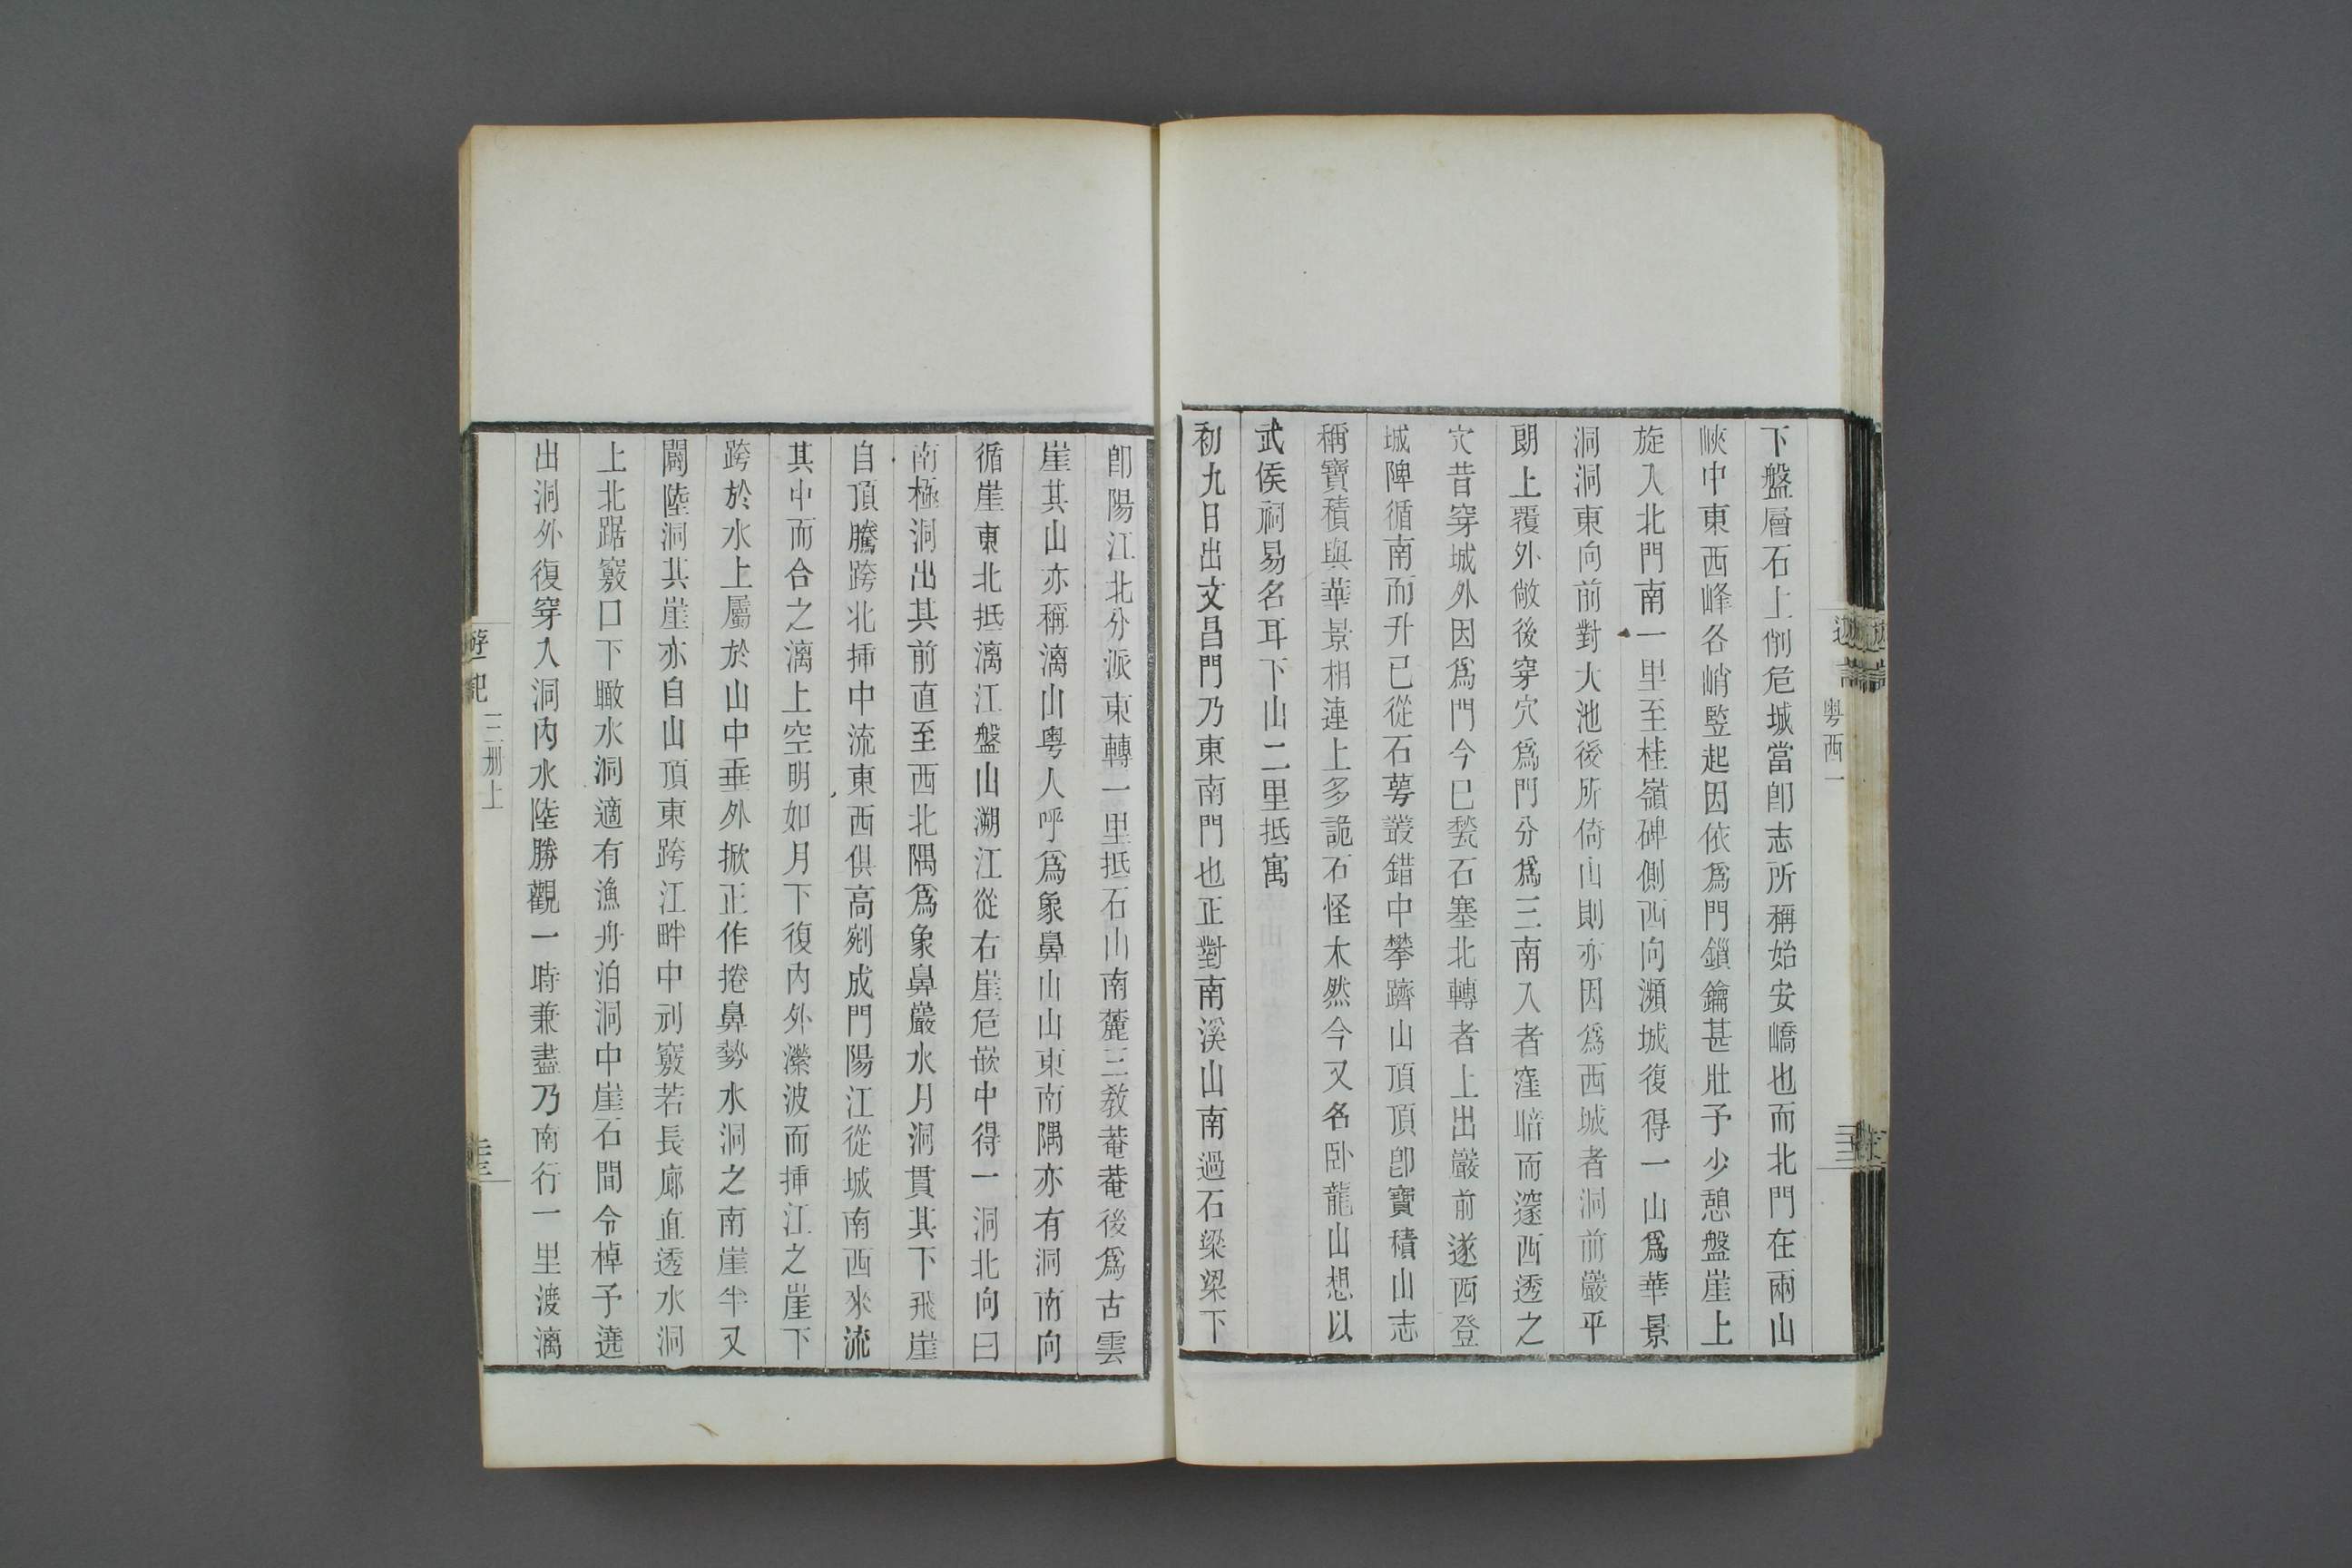 粵西一
下盤層石上削危城當卽志所稱始安嶠也而北門在兩山
峽中東西峰各峭竪起因依爲門鎖鑰甚壯予少憩盤崖上
旋入北門南一里至桂嶺碑側西向瀕城復得一山爲華景
洞洞東向前對大池後所倚山則亦因爲西城者洞前巖平
朗上覆外敞後穿穴爲門分爲三南入者窪暗而邃西透之
穴昔穿城外因爲門今已甃石塞北轉者上出巖前遂西登
城陴循南而升已從石蕚叢錯中攀躋山頂頂卽寶積山志
稱寶積與華景相連上多詭石怪木然今又名卧龍山想以
武侯祠易名耳下山二里抵寓
初九日出文昌門乃東南門也正對南溪山南過石梁梁下
卽陽江北分派東轉一里抵石山南麓三敎菴菴後爲古雲
崖其山亦稱漓山粵人呼爲象鼻山山東南隅亦有洞南向
循崖東北抵漓江盤山溯江從右崖危嵌中得一洞北向曰
南極洞出其前直至西北隅爲象鼻巖水月洞貫其下飛崖
自頂騰跨北揷中流東西俱高剜成門陽江從城南西來流
其中而合之漓上空明如月下復內外瀠波而揷江之崖下
跨於水上屬於山中垂外掀正作捲鼻勢水洞之南崖半又
闢陸洞其崖亦自山頂東跨江畔中刓竅若長廊直透水洞
上北踞竅口下瞰水洞適有漁舟泊洞中崖石間令棹予遶
出洞外復穿入洞內水陸勝觀一時兼盡乃南行一里渡漓
遊記
三册上